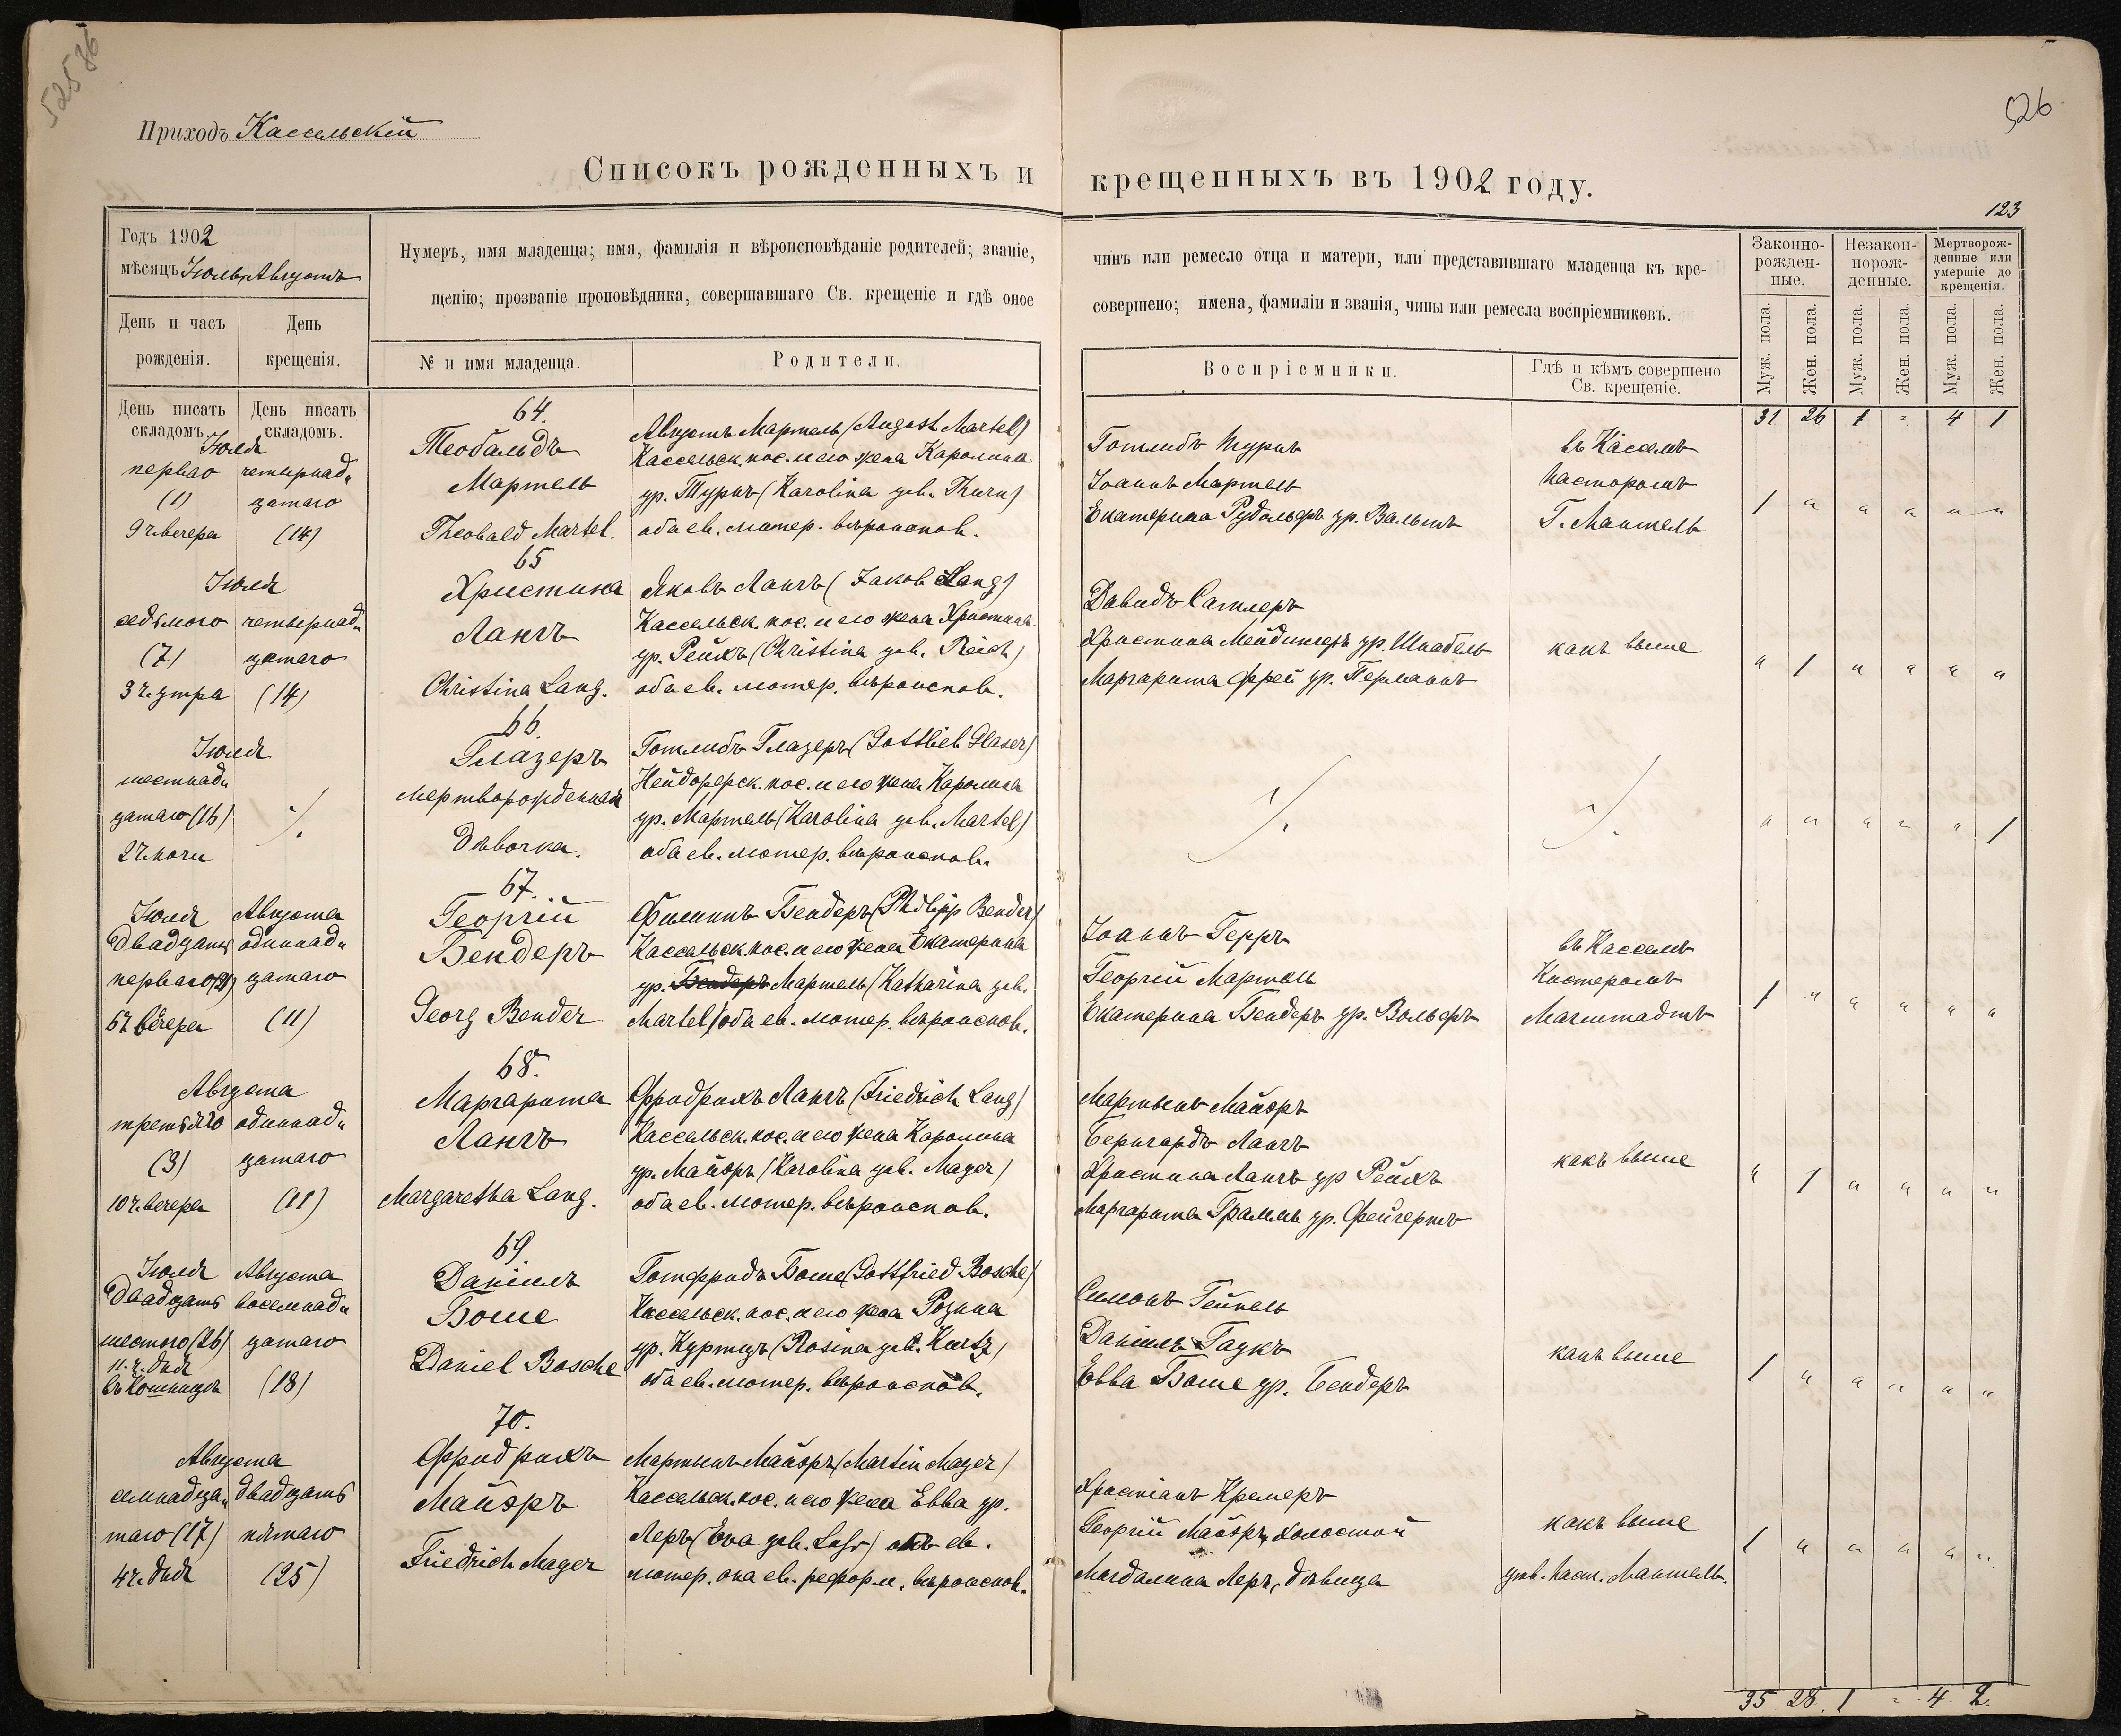 52586
526
Приходъ Кассельскій
Списокъ рожденныхъ и крещенныхъ въ 1902 году.
123
Годъ 1902
мѣсяцъ Іюль, Августъ
День и часъ рожденія.
День крещенія.
Нумеръ, имя младенца; имя, фамилія и вѣроисповѣданіе родителей; званіе,
чинъ или ремесло отца и матери, или представившаго младенца къ кре-
щенію; прозваніе проповѣдника, совершавшаго Св. крещеніе и гдѣ оное
совершено; имена, фамиліи и званія, чины или ремесла воспріемниковъ.
№ и имя младенца.
Родители.
Воспріемники.
Гдѣ и кѣмъ совершено
Св. крещеніе.
Законно-
рожден-
ные.
Незакон-
норож-
денные.
Мертворож-
денные или
умершіе до
крещенія.
Муж. пола.
Жен. пола.
Муж. пола.
Жен. пола.
Муж. пола.
Жен. пола.
День писать
складомъ.
День писать
складомъ.
31 26 1 - 4 1
Іюля
перваго
(1)
9 ч. вечера
четырнад„
цатаго
(14)
64.
Теобальдъ
Мартель
Theobald Martel.
Августъ Мартель (August Martel)
Кассельск. пос. и его жена Каролина
ур. Турнъ (Karolina geb. Thurn)
оба ев. лютер. вѣроиспов.
Готлибъ Турнъ
Іоаннъ Мартель
Екатерина Рудольфъ ур. Вальтъ
въ Касселѣ
пасторомъ
Г. Мантель
1 " " " " "
Іюля
седьмого
(7)
3 ч. утра
четырнад„
цатаго
(14)
65
Христина
Лангъ
Christina Lang.
Яковъ Лангъ (Jakob Lang)
Кассельск. пос. и его жена Христина
ур. Рейхъ (Christina geb. Reich)
оба ев. лютер. вѣроиспов.
Давидъ Сатлеръ
Христина Мейдингеръ ур. Шнабель
Маргарита Фрей ур. Германъ
какъ выше
" 1 " " " "
Іюля
шестнад„
цатаго (16)
2 ч. ночи
·/.
66.
Глазеръ
Мертворожденная
дѣвочка.
Готлибъ Глазеръ (Gottlieb Glaser)
Нейдорфск. пос. и его жена Каролина
ур. Мартель (Karolina geb. Martel)
оба ев. лютер. вѣроиспов.
·/.
·/.
" " " " " 1
Іюля
двадцать
перваго (21)
6 ч. вечера
Августа
одиннад„
цатаго
(11)
67.
Георгій
Бендеръ
Georg Bender
Филиппъ Бендеръ (Philipp Bender)
Кассельск. пос. и его жена Екатерина
ур. Бендеръ Мартель (Katharina geb.
Martel) оба ев. лютер. вѣроиспов.
Іоаннъ Герръ
Георгій Мартель
Екатерина Бендеръ ур. Вольфъ
въ Касселѣ
Кистеромъ
Магштадтъ
1 " " " " "
Августа
третьяго
(3)
10 ч. вечера
одиннад„
цатаго
(11)
68.
Маргарита
Лангъ
Margaretha Lang.
Фридрихъ Лангъ (Friedrich Lang)
Кассельск. пос. и его жена Каролина
ур. Майэръ (Karolina geb. Mayer)
оба ев. лютер. вѣроиспов.
Мартынъ Майэръ
Бернгардъ Лангъ
Христина Лангъ ур. Рейхъ
Маргарита Граммъ ур. Фейгертъ
какъ выше
" 1 " " " "
Іюля
двадцать
шестого (26)
11. ч. дня
въ Кошницѣ
Августа
восемнад„
цатаго
(18)
69.
Даніилъ
Боше
Daniel Bosche
Готфридъ Боше (Gottfried Bosche)
Кассельск. пос. и его жена Розина
ур. Куртцъ (Rosina geb. Kurtz)
оба ев. лютер. вѣроиспов.
Симонъ Гейнель
Даніилъ Гаукъ
Евва Боше ур. Бендеръ
какъ выше
1 " " " " "
Августа
семнадца„
таго (17)
4 ч. дня
двадцать
пятаго
(25)
70.
Фридрихъ
Майэръ
Friedrich Mayer
Мартынъ Майэръ (Martin Mayer)
Кассельск. пос. и его жена Евва ур.
Леръ (Eva geb. Lehr) онъ ев.
лютер. она ев. реформ. вѣроиспов.
Христіанъ Кремеръ
Георгій Майэръ, холостой
Магдалина Леръ, дѣвица
какъ выше
утв. паст. Мантель.
1 " " " " "
35 28. 1 - 4 2.